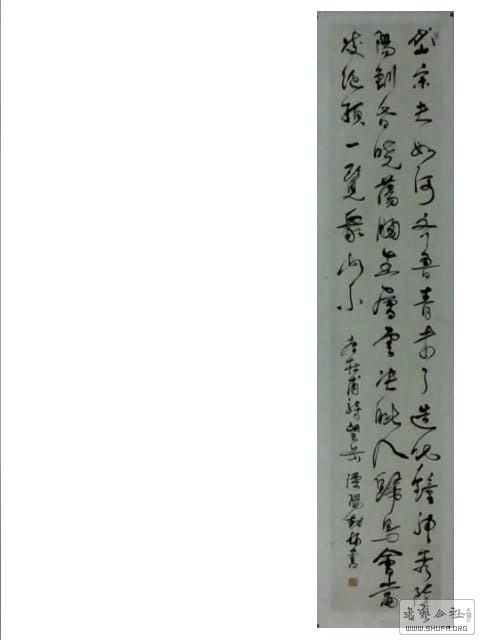 岱宗夫如何齐鲁青未了造化鐘神秀陰
陽割昏晓蕩胸生層雲决眥入歸鳥會當
凌絕頂一覽眾山小
唐杜甫詩望岳 溧陽書
書藝公社
WWW.SHUFA.ORG